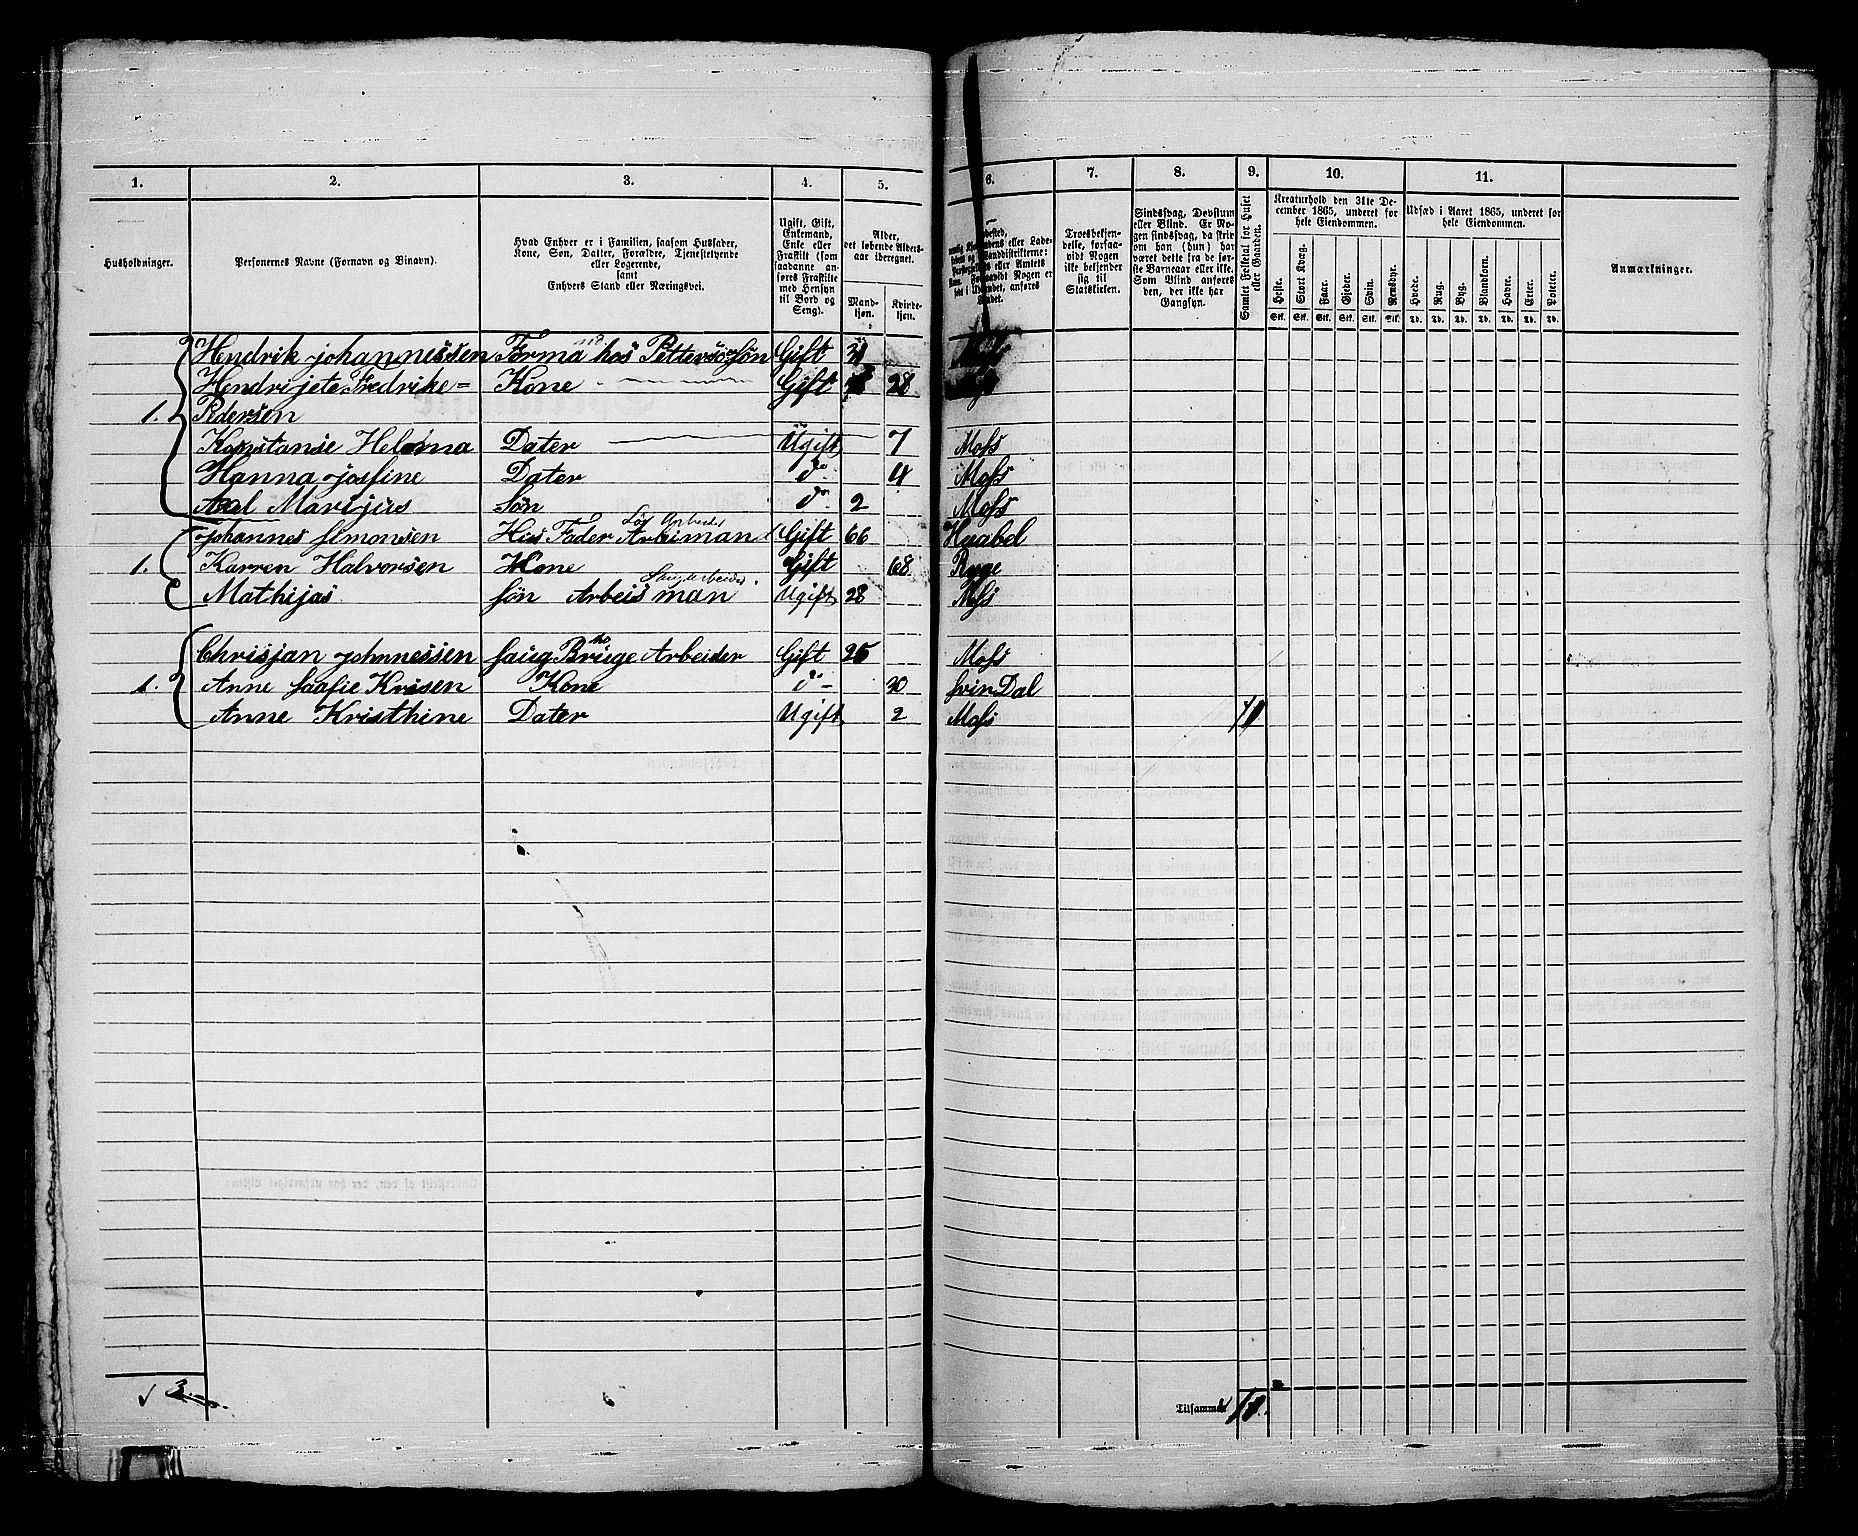 1. 2. 3. 4. 5. 6. 7. 8. 9. 10. 11.
Husholdninger.
Personernes Navne (Fornavn og Binavn).
Hvad Enhver er i Familien, saasom Husfader,
Kone, Søn, Datter, Forældre, Tjenestetyende
eller Logerende,
samt
Enhvers Stand eller Næringsvei.
Ugift, Gift,
Enkemand,
Enke eller
Fraskilt (som
saadanne an-
føres Fraskilte
med Hensyn
til Bord og
Seng).
Alder,
det løbende Alders-
aar iberegnet.
Mand-
kjøn.
Kvinde-
kjøn.
Troesbekjen-
delse, forsaa-
vidt Nogen
ikke bekjender
sig til
Statskirken.
Sindssvag, Døvstum
eller Blind. Er No-
gen sindssvag, da skrives
om han (hun) har
været dette fra de før-
ste Barneaar eller ikke.
Som Blind anføres
den, der ikke har
Gangsyn.
Samlet Folketal for Huset
eller Gaarden.
Kreaturhold den 31te De-
cember 1865, underet for
hele Eiendommen.
Heste. Stort Kvæg. Faar. Gjeder. Svin. Rensdyr.
Stk. Stk. Stk. Stk. Stk. Stk.
Udsæd i Aaret 1865, underet for
hele Eiendommen.
Hvede. Rug. Byg. Blandkorn. Havre. Erter. Poteter.
Td. Td. Td. Td. Td. Td. Td.
Anmærkninger.
Hendrik johannessen Forma hos Pettersøson Gift
Hendrijete Fredrike= Kone Gift 28
1. Pedersen
Konstanse Helena Dater Ugift 7 Moss
Hanna josfine Dater do 4 Moss
Marijus Søn do 2 Moss
Johannes Simonsen Hus Fader Arbeiman Gift 66 Haabel
1. Karren Halvorsen Kone Gift 68 Ryge
Mathijas søn Arbeisman Ugift 28 Moss
Chrisjan johnnessen saug Bruge Arbeider Gift 25 Moss
1. Anne saafie Krisen Kone do 30 svin Dal
Anne Kristhine Dater Ugift 2 Moss 11
3
Tilsammen 11.